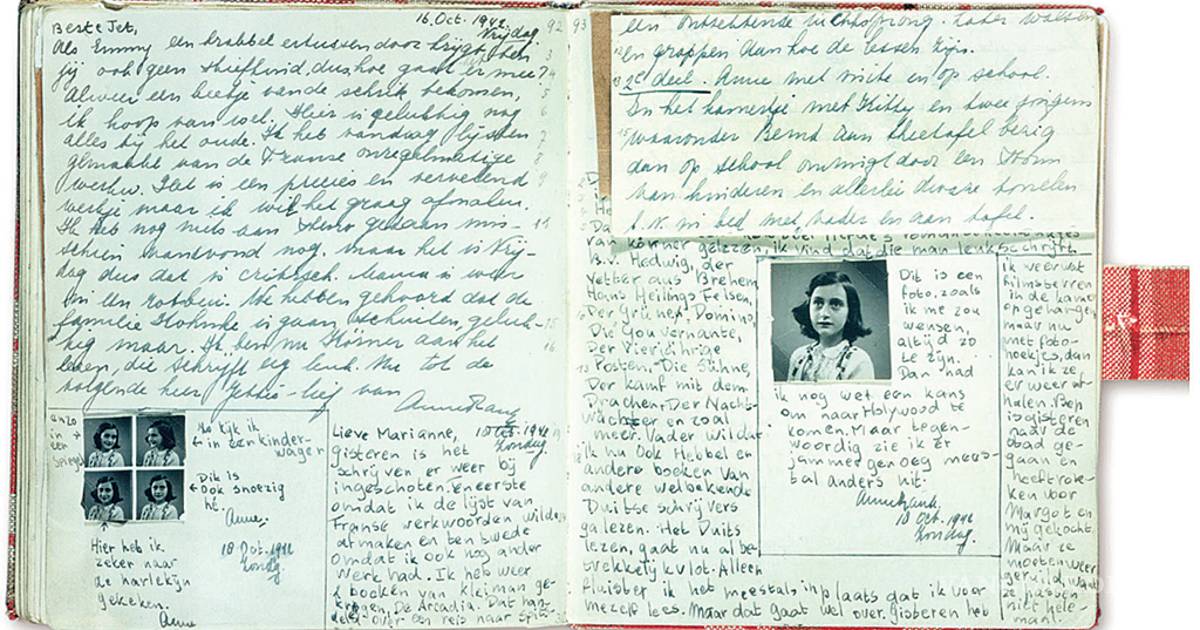 16. Oct. 1942.
Vrijdag
92
Beste Jet,
Als Emmy een krabbel ertussen door krijgt, ben
jij ook geen stiefkind, dus hoe gaat er mee?
Alweer een beetje van de schrik bekomen,
ik hoop van wel. Hier is gelukkig nog
alles bij het oude. Ik heb vandaag lijsten
gemaakt van de Franse onregelmatige
werkw. Het is een precies en vervelend
werkje maar ik wil het graag afmaken.
Ik heb nog niets aan gedaan mis-
schien vanavond nog, maar het is Vrij-
dag dus dat is critisch. Mama is weer
in een We hebben gehoord dat de
familie is gaan schuilen, geluk-
kig maar. Ik ben nu Körner aan het
lezen, die schrijft erg leuk. Nu tot de
volgende keer Jettie-lief van
Anne Frank
enzo
in
een
spiegel
Nu kijk ik
in een kinder-
wagen
Dit is
Ook snoezig
hè.
Anne.
Hier heb ik
zeker naar
de harlekijn
gekeken.
Anne
18 Oct. 1942
Zondag.
Lieve Marianne,
18 Oct. 1942
Zondag.
gisteren is het
schrijven er weer bij
ingeschoten. Eneerste
omdat ik de lijst van
Franse werkwoorden wilde
afmaken en ten twede
omdat ik ook nog ander
werk had. Ik heb weer
2 boeken van kleiman ge-
kregen, De Arcadia. Dat han-
delt over een reis naar Spits-
93
een ontzettende luchtsprong. Later walsen
en grappen aan hoe de lessen zijn.
2e deel. Anne met visite en op school.
In het kamertje met Kitty en twee jongens
waaronder Bernd aan theetafel bezig
dan op school omringd door een stroom
van kinderen en allerlei dwaze tonelen
b.v. in bed met vader en aan tafel.
van körner gelezen, ik vind dat die man leuk schrijft.
B.v. Hedwig, der
Vetter aus Bremen
Hans Heilings Felsen,
Der Grüne, Domino,
Die Gouvernante,
Der Vierjährige
Posten, Die Sühne,
Der Kampf mit dem
Drachen, Der Nacht-
wächter en zoal
meer. Vader wil dat
ik nu ook Hebbel en
andere boeken van
andere welbekende
Duitse schrijvers
ga lezen. Het Duits
lezen, gaat nu al be-
trekkelijk vlot. Alleen
fluister ik het meestal, inplaats dat ik voor
mezelf lees. Maar dat gaat wel over. gisteren heb
Dit is een
foto, zoals
ik me zou
wensen,
altijd zo
te zijn.
Dan had
ik nog wel een kans
om naar Holywood te
komen. Maar tegen-
woordig zie ik er
jammer genoeg mees-
tal anders uit.
Anne Frank.
18 Oct. 1942
Zondag.
ik weer wat
filmsterren
in de kamer
opgehangen,
maar nu
met foto-
hoekjes, dan
kan ik ze
er weer af-
halen. Bep
is gisteren
naar de
stad ge-
gaan en
heeft rok-
ken voor
Margot en
mij gekocht.
Maar ze
moeten weer
geruild, want
ze passen
niet hele-
maal.